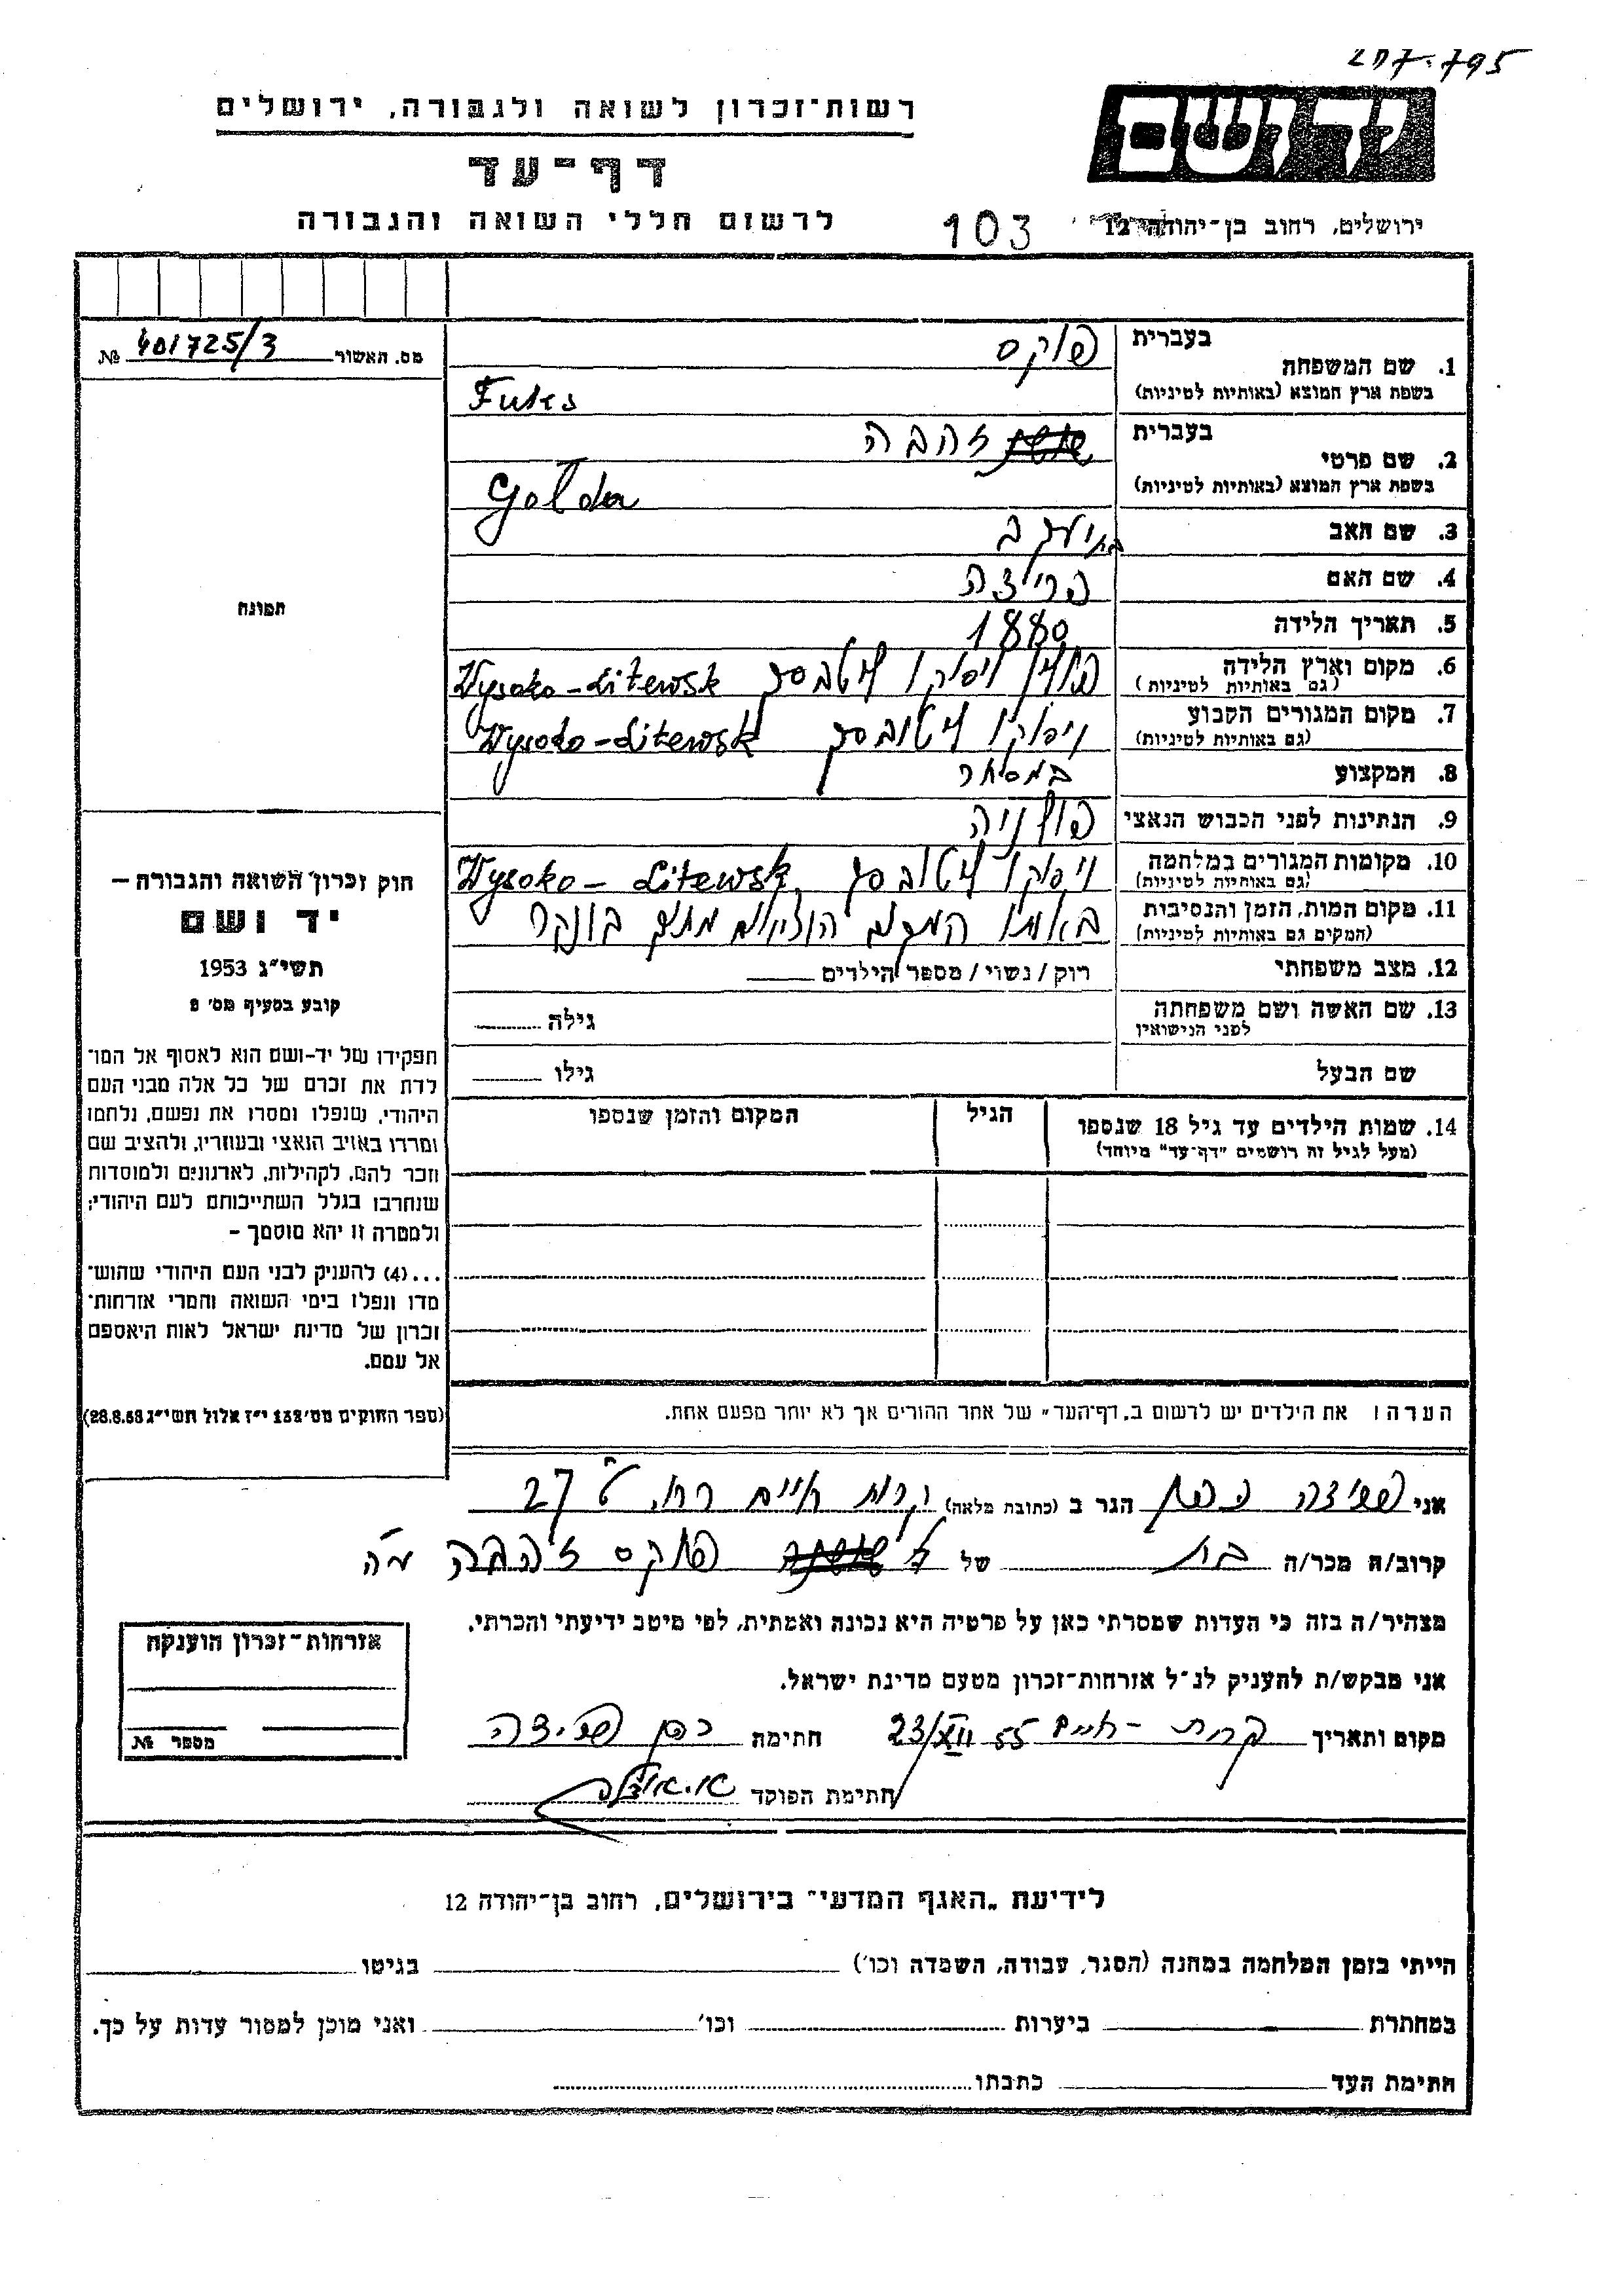 רשות-זכרון לשואה ולגבורה, ירושלים
יד ושם
דף-עד
לרשום חללי השואה והגבורה
103
ירושלים, רחוב בן-יהודה 12
מס. האשור 401725/3 №
בעברית פוקס
1. שם המשפחה
בשפת ארץ המוצא (באותיות לטיניות) Fuks
בעברית זהבה
2. שם פרטי
בשפת ארץ המוצא (באותיות לטיניות) Golda
3. שם האב יעקב
4. שם האם פריידה
5. תאריך הלידה 1880
6. מקום וארץ הלידה פולין ויסוקו ליטבסק Wysoko-Litewsk
(גם באותיות לטיניות)
7. מקום המגורים הקבוע ויסוקו ליטובסק Wysoko-Litewsk
(גם באותיות לטיניות)
8. המקצוע במסחר
9. הנתינות לפני הכבוש הנאצי פולניה
10. מקומות המגורים במלחמה ויסוקו ליטובסק Wysoko-Litewsk
(גם באותיות לטיניות)
11. מקום המות, הזמן והנסיבות באותו המקום הוציאום מתוך בונקר
(המקום גם באותיות לטיניות)
12. מצב משפחתי רוק / נשוי / מספר הילדים
13. שם האשה ושם משפחתה גילה
לפני הנישואין
שם הבעל גילו
14. שמות הילדים עד גיל 18 שנספו הגיל המקום והזמן שנספו
(מעל לגיל זה רושמים "דף-עד" מיוחד)
תמונה
חוק זכרון השואה והגבורה –
יד ושם
תשי"ג 1953
קובע בסעיף מס' 2
תפקידו של יד-ושם הוא לאסוף אל המו־
לדת את זכרם של כל אלה מבני העם
היהודי, שנפלו ומסרו את נפשם, נלחמו
ומרדו באויב הנאצי ובעוזריו, ולהציב שם
וזכר להם, לקהילות, לארגונים ולמוסדות
שנחרבו בגלל השתייכותם לעם היהודי;
ולמטרה זו יהא מוסמך –
...(4) להעניק לבני העם היהודי שהוש־
מדו ונפלו בימי השואה והמרי אזרחות־
זכרון של מדינת ישראל לאות היאספם
אל עמם.
(ספר החוקים מס' 132 י"ז אלול תשי"ג 28.8.53)
הערה: את הילדים יש לרשום ב"דף-העד" של אחד ההורים אך לא יותר מפעם אחת.
אני הגר ב (כתובת מלאה) קרית חיים 27
קרוב/ה מכר/ה בת של פוקס זהבה
מצהיר/ה בזה כי העדות שמסרתי כאן על פרטיה היא נכונה ואמתית, לפי מיטב ידיעתי והכרתי.
אני מבקש/ת להעניק לנ"ל אזרחות-זכרון מטעם מדינת ישראל.
מקום ותאריך קרית-חיים 23/XII 55 חתימה
חתימת הפוקד
אזרחות-זכרון הוענקה
מספר №
לידיעת "האגף המדעי" בירושלים, רחוב בן-יהודה 12
הייתי בזמן המלחמה במחנה (הסגר, עבודה, השמדה וכו') בגיטו
במחתרת ביערות וכו' ואני מוכן למסור עדות על כך.
חתימת העד כתבתו